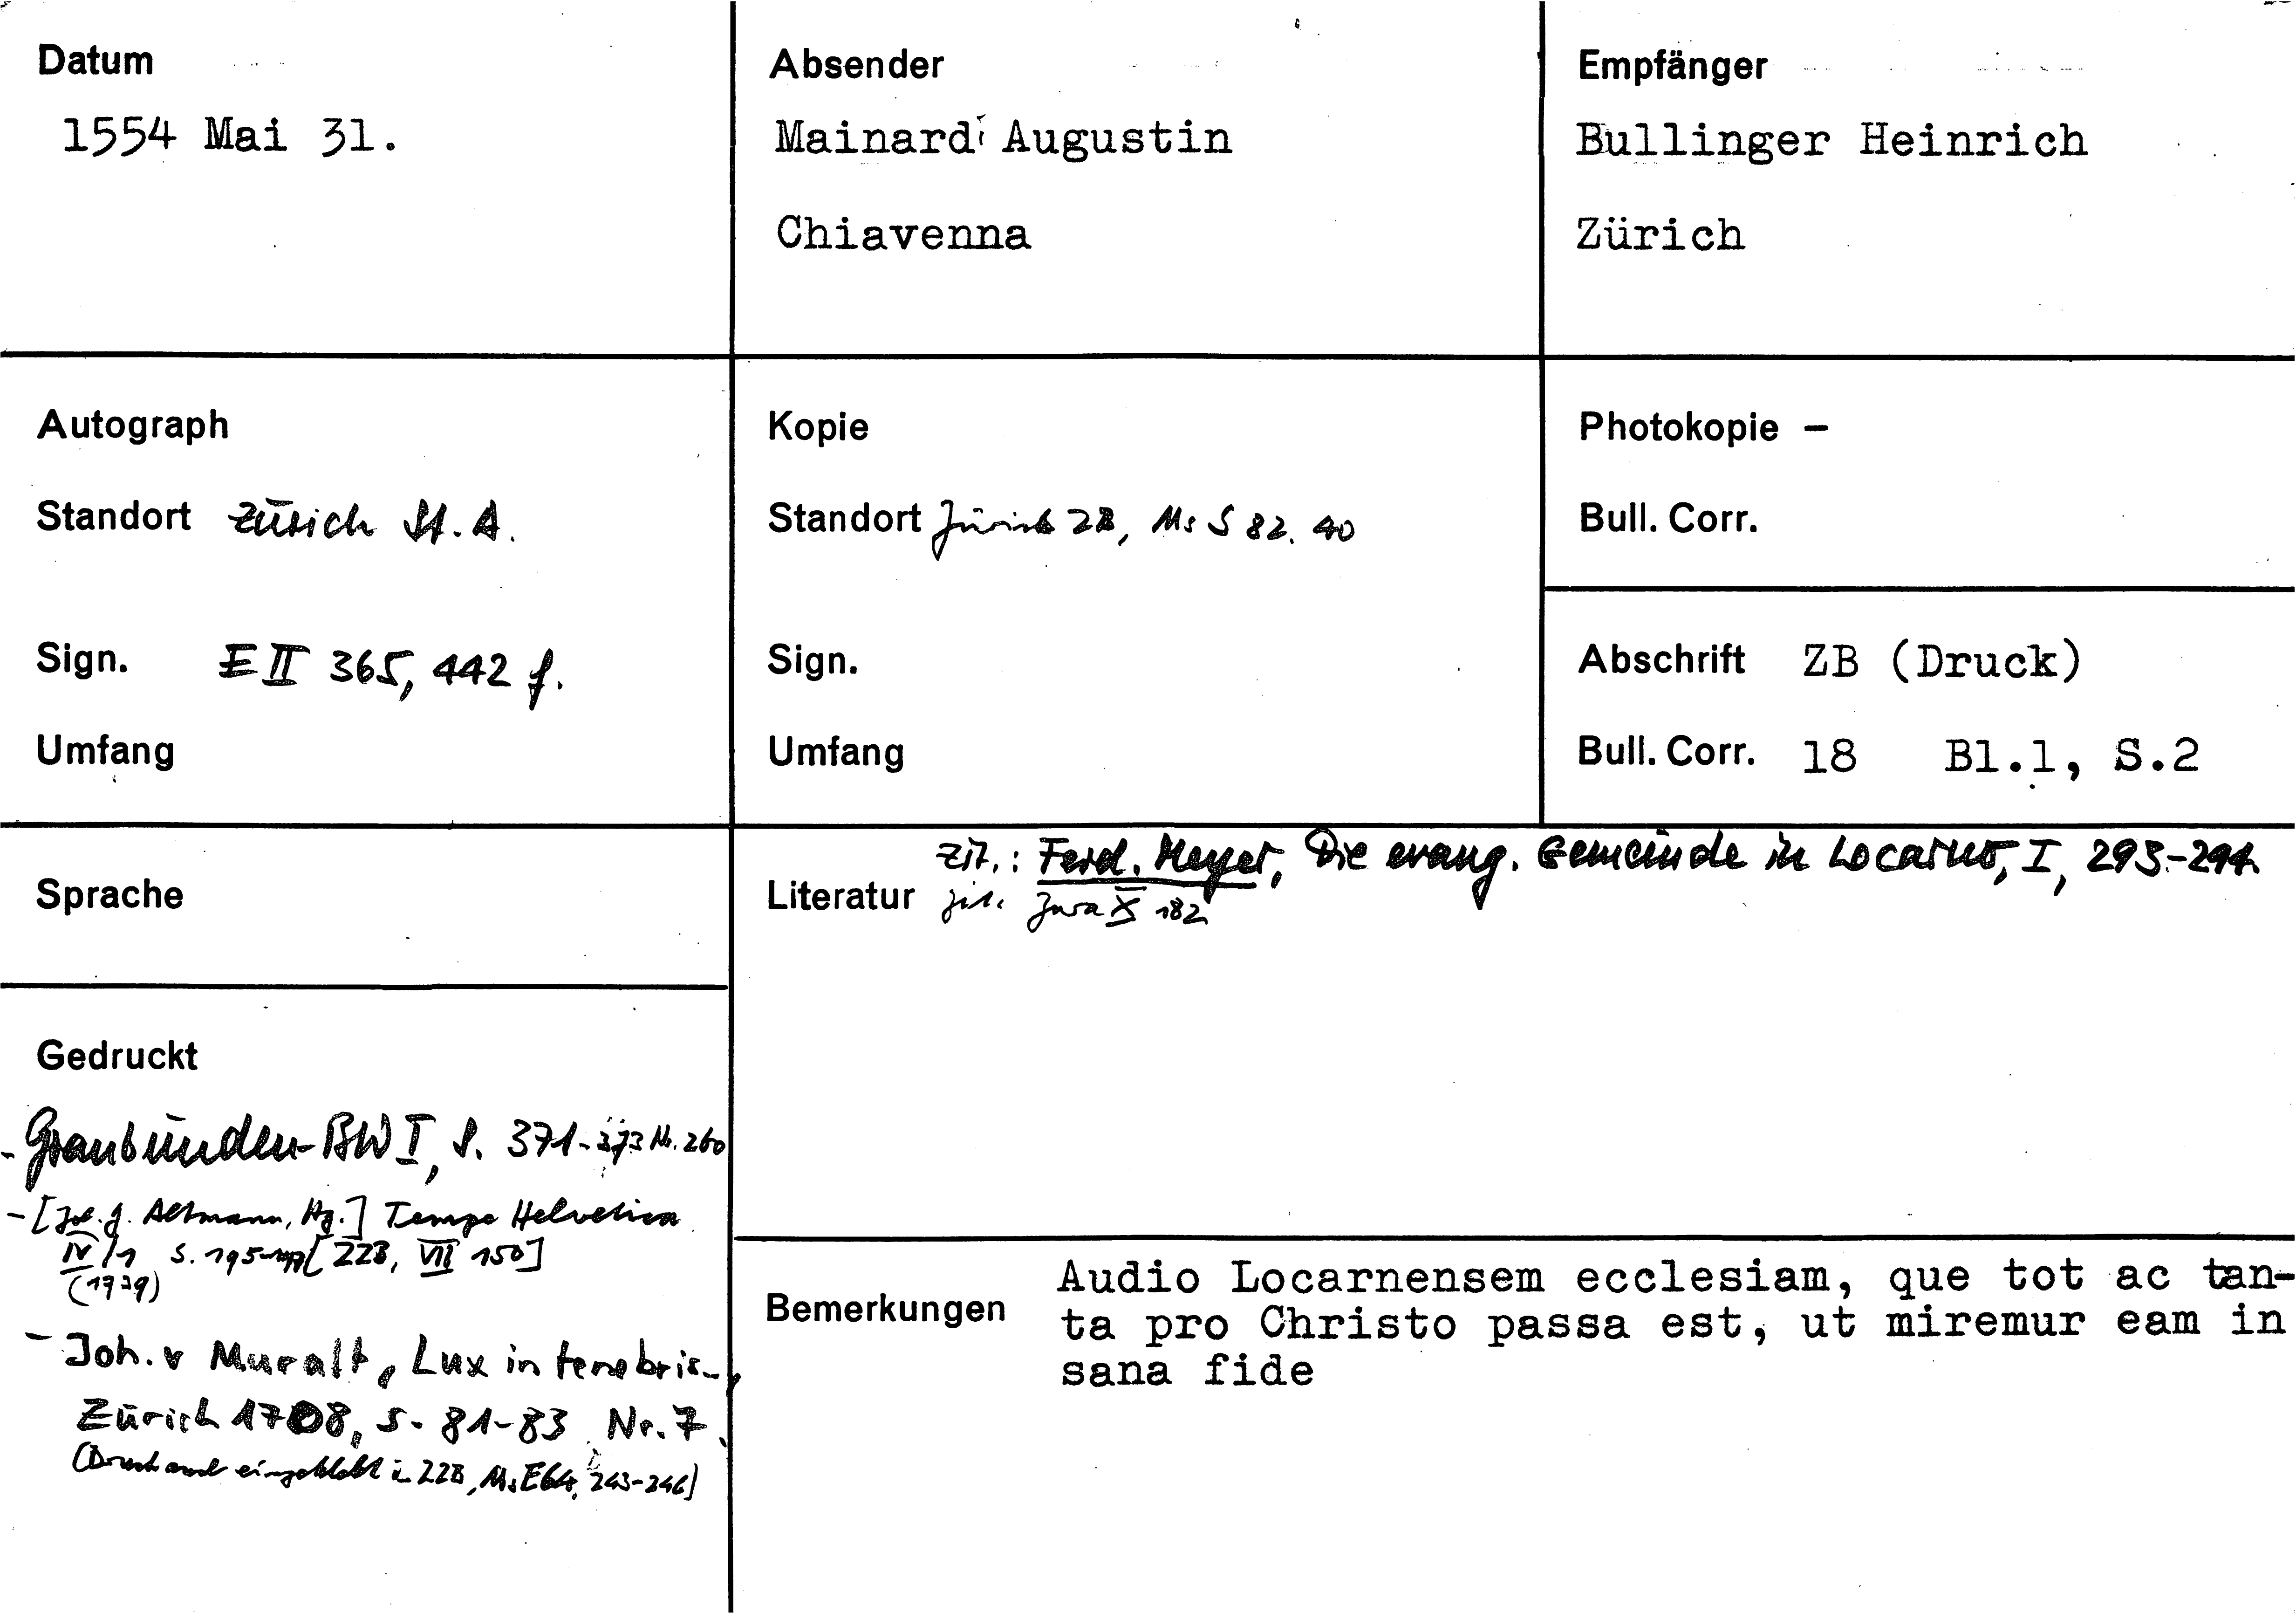 Datum
1554 Mai 31.
Absender
Mainardi Augustin
Chiavenna
Empfänger
Bullinger Heinrich
Zürich
Autograph
Standort Zürich St.A.
Sign. E II 365, 442 f.
Umfang
Kopie
Standort Zürich ZB, Ms S 82. 40
Sign.
Umfang
Photokopie –
Bull. Corr.
Abschrift ZB (Druck)
Bull. Corr. 18 Bl.1, S.2
Sprache
Literatur
zit.: Ferd. Meyer, Die evang. Gemeinde in Locarno, I, 293-294.
zit. X 182
Gedruckt
- Graubünden-BW I, S. 371-373 Nr. 260
- [Joh. J. Altmann, Hg.] Tempe Helvetica
IV/1 S. 195 [ZZB, VII 150]
(1739)
- Joh. v Muralt, Lux in tenebris,
Zürich 1708, S. 81-83 Nr. 7
(Druck auch eingeklebt in ZZB, Ms E 64, 243-246)
Bemerkungen
Audio Locarnensem ecclesiam, que tot ac tan-
ta pro Christo passa est, ut miremur eam in
sana fide